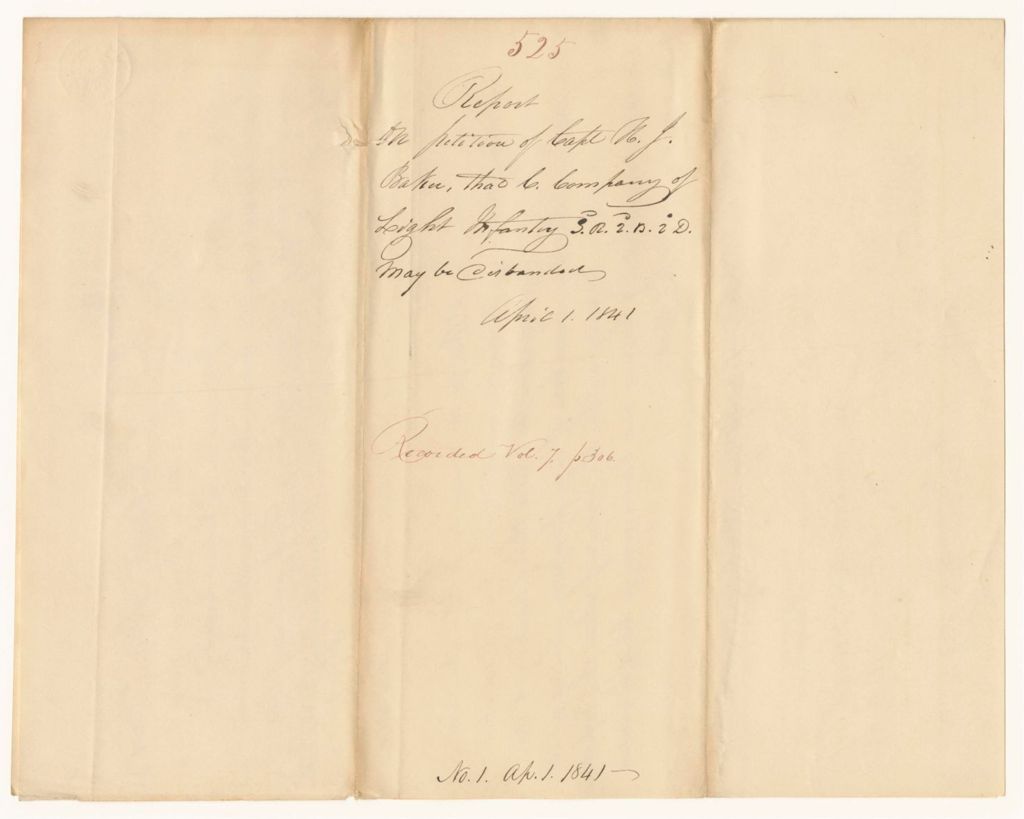 525
Report
On petition of Capt H. J.
Baker, that C. Company of
Light Infantry 3. R. 2. B. 2 D.
may be disbanded
April 1. 1841
Recorded Vol. 7. p. 306.
No. 1. Ap. 1. 1841